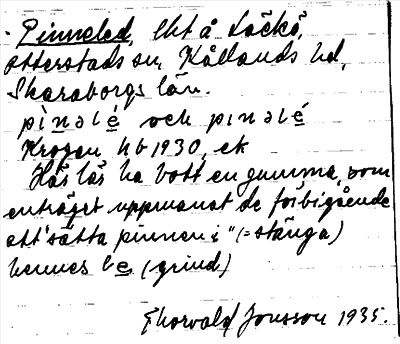 · Pinneled, lht å Läckö,
Otterstads sn, Kållands hd,
Skaraborgs län.
pinəlé och pinəlé
Krogen, hb 1930, ek
Här lär ha bott en gumma, som
enträget uppmanat de förbigående
att "sätta pinnen i" (= stänga)
hennes le (grind)
Thorvald Jonsson 1935.